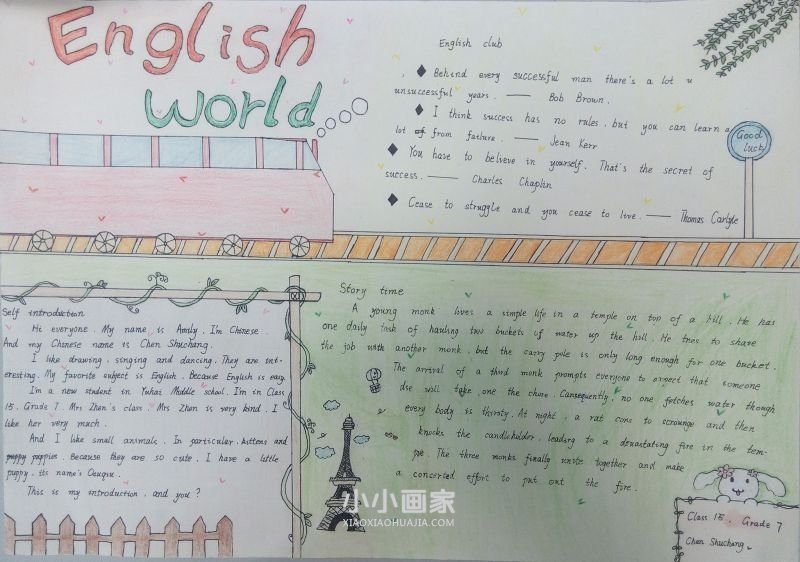 English
World
English club
Behind every successful man there's a lot u
unsuccessful years. —— Bob Brown.
I think success has no rules. but you can learn a
lot of from failure. —— Jean Kerr
You have to believe in yourself. That's the secret of
success. —— Charles Chaplin
Cease to struggle and you cease to live. —— Thomas Carlyle
Good
luck
Self introduction
Hi everyone. My name is Amily. I'm Chinese.
And my Chinese name is Chen Shuchang.
I like drawing, singing and dancing. They are int-
eresting. My favorite subject is English. Because English is easy.
I'm a new student in Yuhai Middle school. I'm in Class
15. Grade 7. Mrs Zhen's class. Mrs Zhen is very kind. I
like her very much.
And I like small animals. In particular. kittens and
puppy puppies. Because they are so cute. I have a little
puppy. its name's
This is my introduction. and you?
Story time
A young monk lives a simple life in a temple on top of a hill. He has
one daily task of hauling two buckets of water up the hill. He tries to share
the job with another monk. but the carry pole is only long enough for one bucket.
The arrival of a third monk prompts everyone to expect that someone
else will take one the chore. Consequently, no one fetches water though
every body is thirsty. At night, a rat coms to scrounge and then
knocks the candleholder, leading to a devastating fire in the tem-
The three monks finally unite together and make
a concerted effort to put out the fire.
小小画家
XIAOXIAOHUAJIA.COM
Class 15. Grade 7
Chen Shuchang.